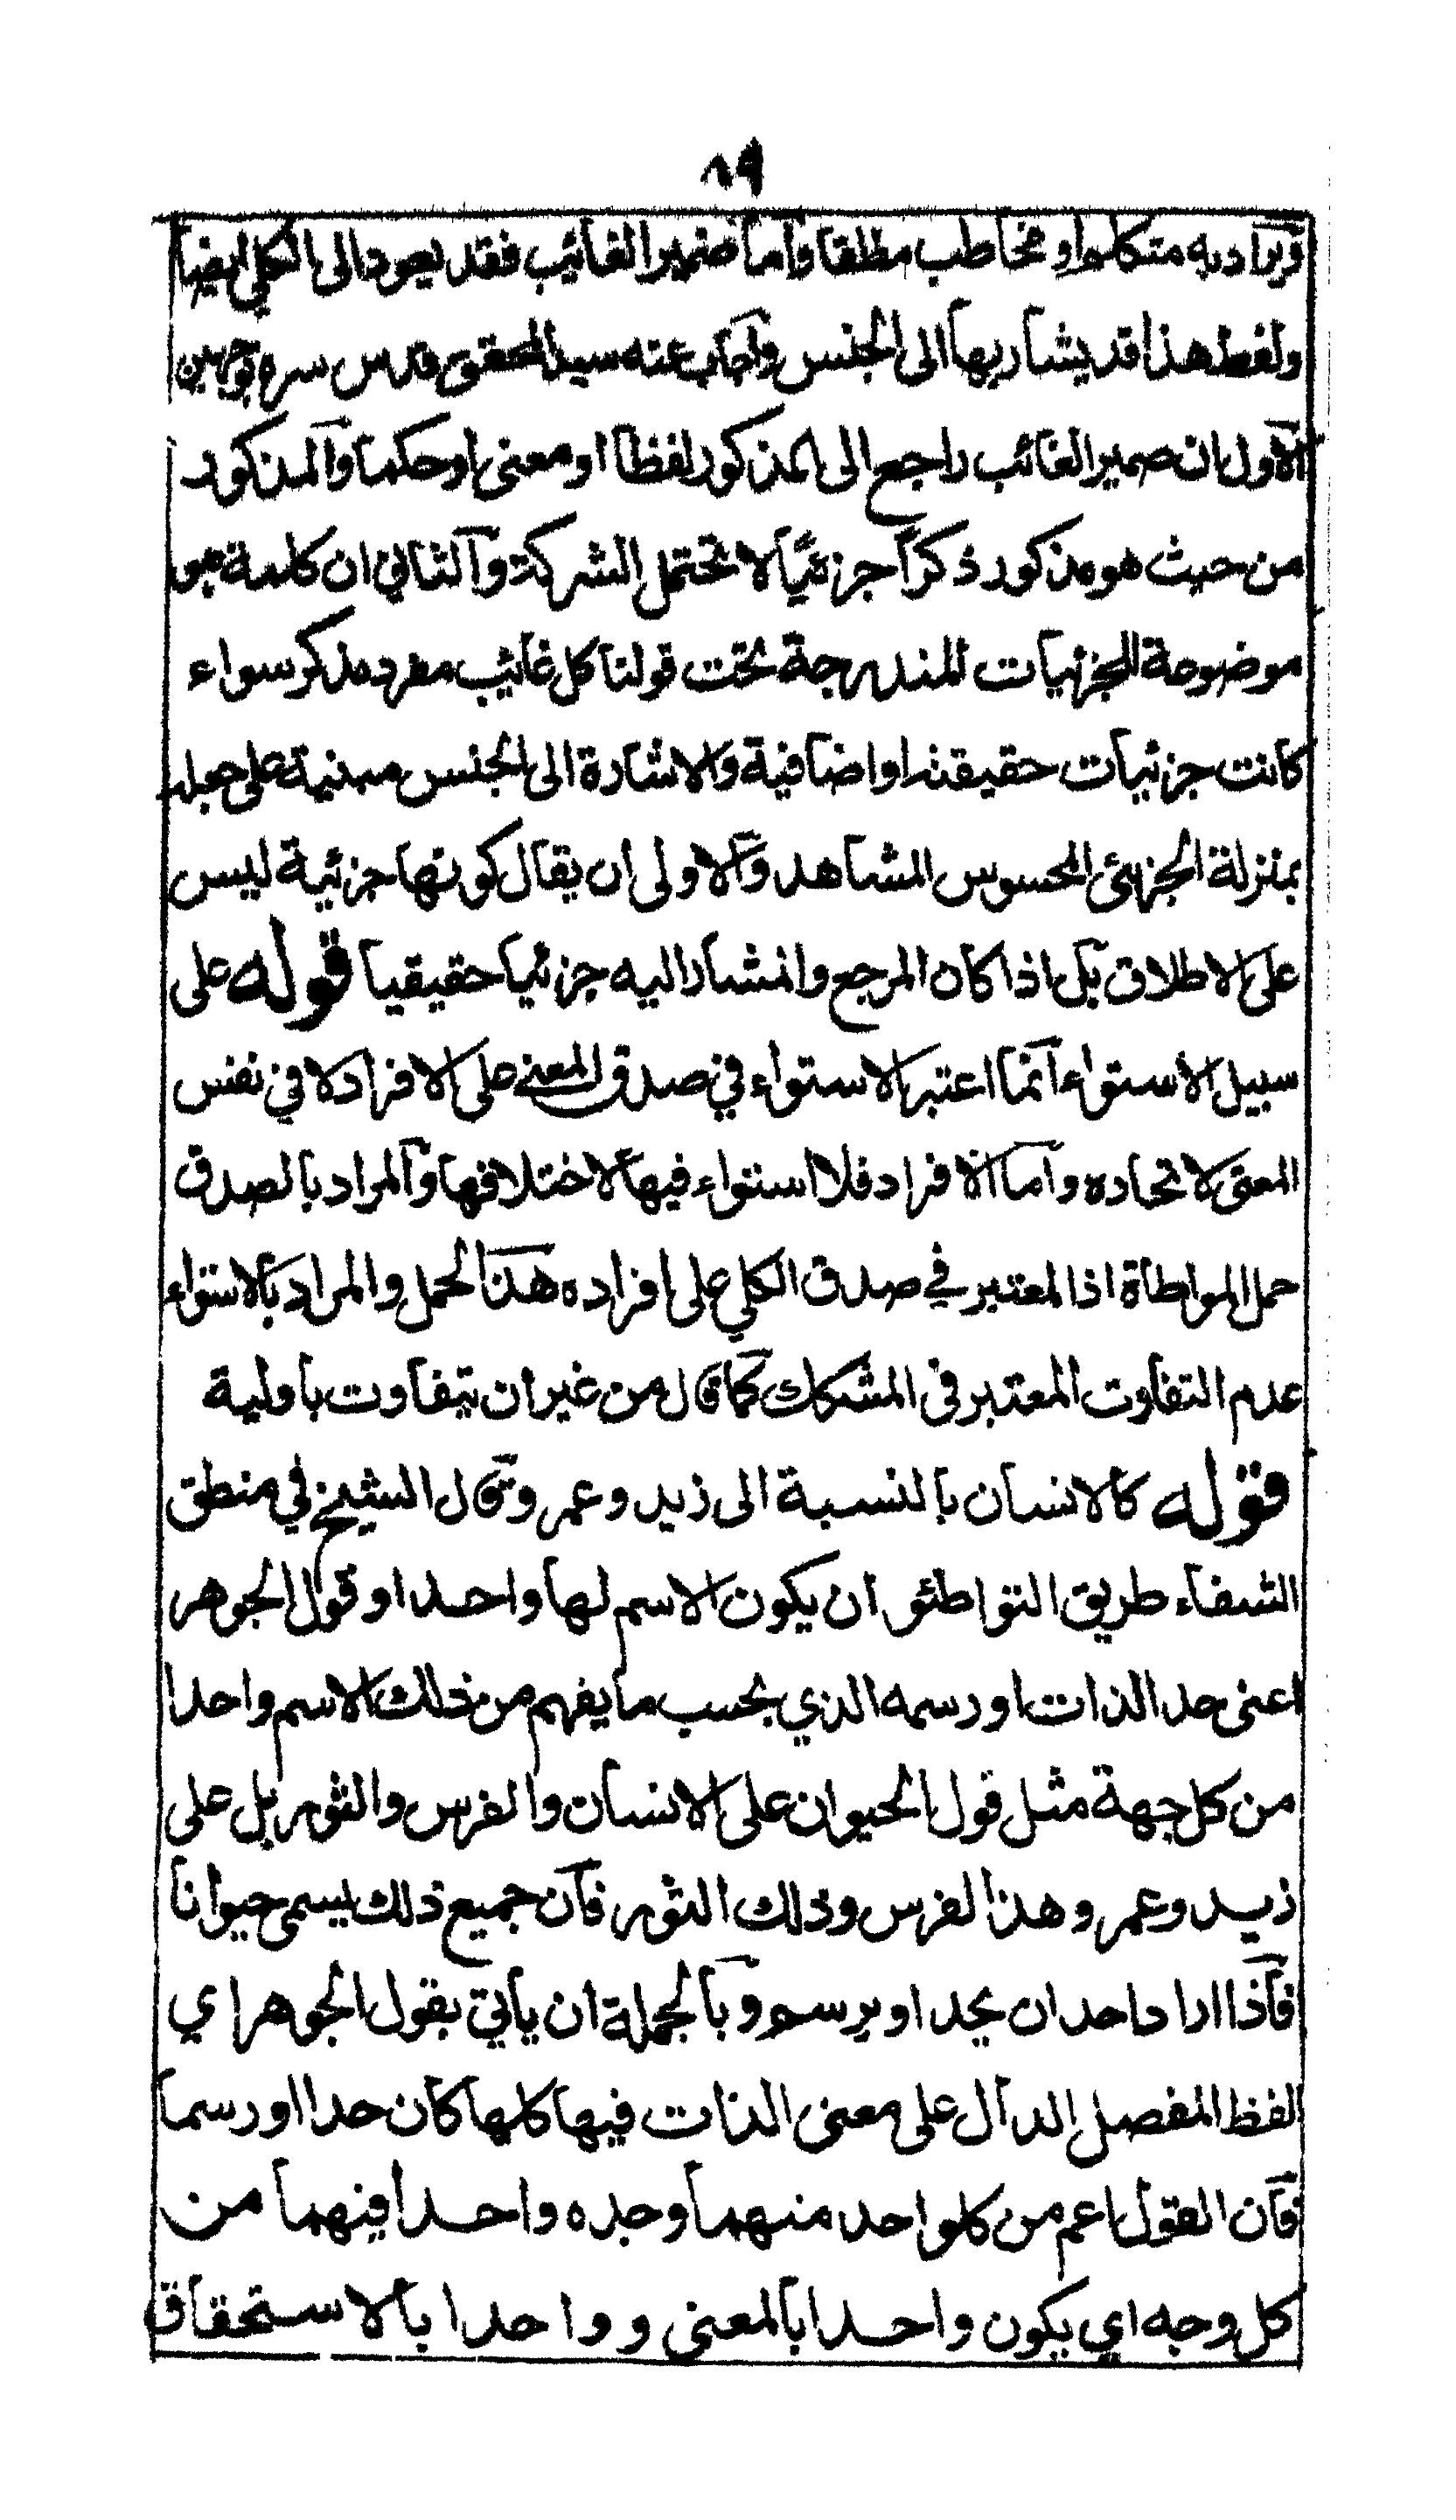 ٨٩
ويراد به متكلم او مخاطب مطلقا واما ضمير الغائب فقد يعود الى الكلي ايضا
ولفظ هذا قد يشار بها الى الجنس واجاب عنه سيد المحقق قدس سره بوجهين
الاول ان ضمير الغائب راجع الى المذكور لفظا او معنى او حكما والمذكور
من حيث هو مذكور ذكرا جزئيا لا تحتمل الشركة والثاني ان كلمة هو
موضوعة للجزئيات المندرجة تحت قولنا كل غائب مفرد مذكر سواء
كانت جزئيات حقيقة او اضافية والاشارة الى الجنس مبنية على جعله
بمنزلة الجزئي المحسوس المشاهد والاولى ان يقال كونها جزئية ليس
على الاطلاق بل اذا كان المرجع والمشار اليه جزئيا حقيقيا قوله على
سبيل الاستواء انما اعتبر الاستواء في صدق المعنى على الافراد لا في نفس
المعنى لاتحاده واما الافراد فلا استواء فيها لاختلافها والمراد بالصدق
حمل المواطاة اذ المعتبر في صدق الكلي على افراده هذا الحمل والمراد بالاستواء
عدم التفاوت المعتبر في المشكك كما قال من غير ان يتفاوت باولية
قوله كالانسان بالنسبة الى زيد وعمرو قال الشيخ في منطق
الشفاء طريق التواطئ ان يكون الاسم لها واحدا وقول الجوهر
اعنى حد الذات او رسمه الذي بحسب ما يفهم من ذلك الاسم واحدا
من كل جهة مثل قول الحيوان على الانسان والفرس والثور بل على
زيد وعمرو هذا الفرس وذلك الثور فان جميع ذلك يسمى حيوانا
فاذا اراد احد ان يحد او يرسم وبالجملة ان ياتي بقول الجوهر اي
الفظ المفصل الدال على معنى الذات فيها كلها كان حدا او رسما
فان القول اعم من كلواحد منهما وجده واحدا فيهما من
كل وجه اي يكون واحدا بالمعنى و واحدا بالاستحقاق